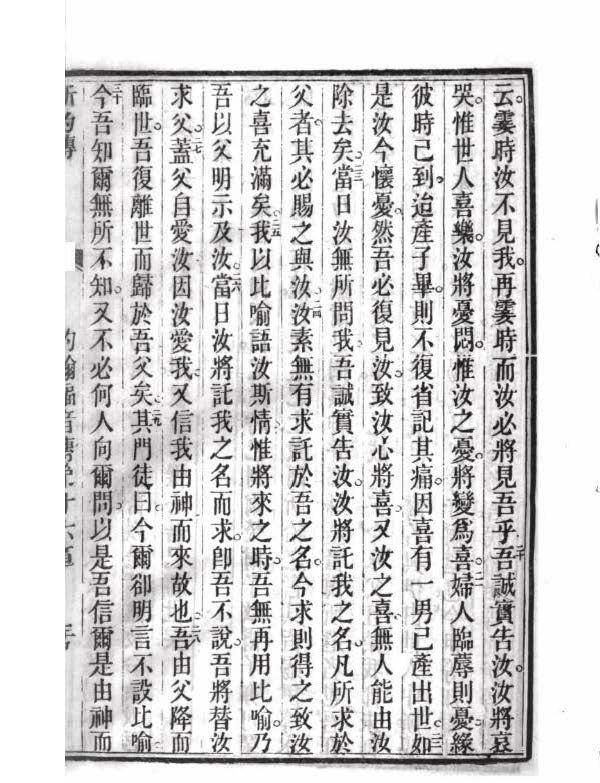 云霎時汝不見我再霎時而汝必將見吾乎二十吾誠實告汝汝將哀
哭惟世人喜樂汝將憂悶惟汝之憂將變爲喜二一婦人臨蓐則憂緣
彼時己到迨產子畢則不復省記其痛因喜有一男己產出世二二如
是汝今懷憂然吾必復見汝致汝心將喜又汝之喜無人能由汝
除去矣二三當日汝無所問我吾誠實告汝汝將託我之名凡所求於
父者其必賜之與汝二四汝素無有求託於吾之名今求則得之致汝
之喜充滿矣二五我以比喻語汝斯情惟將來之時吾無再用比喻乃
吾以父明示及汝二六當日汝將託我之名而求卽吾不說吾將替汝
求父二七蓋父自愛汝因汝愛我又信我由神而來故也二八吾由父降而
臨世吾復離世而歸於吾父矣二九其門徒曰今爾卻明言不設比喻
三十今吾知爾無所不知又不必何人向爾問以是吾信爾是由神而